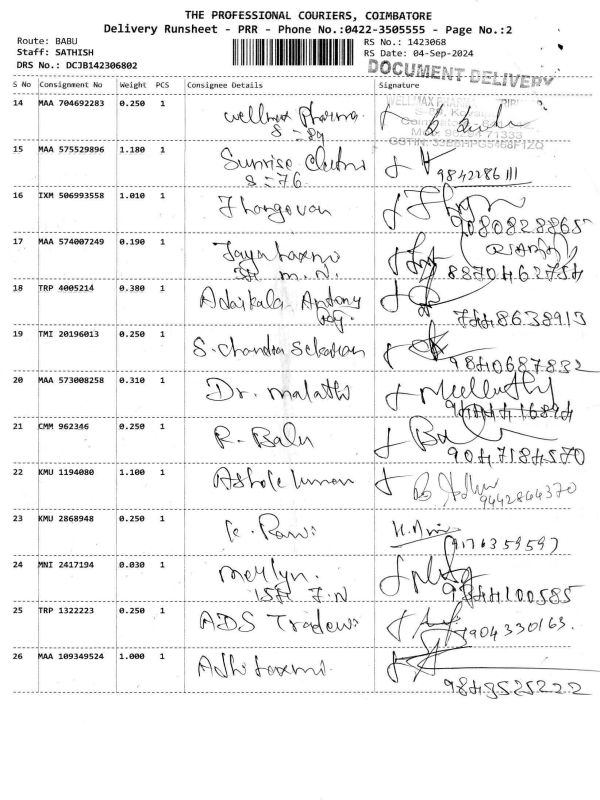 THE PROFESSIONAL COURIERS, COIMBATORE
Delivery Runsheet - PRR - Phone No.:0422-3505555 - Page No.:2
Route: BABU
RS No.: 1423068
Staff: SATHISH
RS Date: 04-Sep-2024
DRS No.: DCJB142306802
DOCUMENT DELIVERY
S No Consignment No Weight PCS Consignee Details Signature
14 MAA 704692283 0.250 1 Wellmax Pharma
15 MAA 575529896 1.180 1 Sunrise
S=76 9842286111
16 IXM 506993558 1.010 1 Thangavan
9080828865
17 MAA 574007249 0.190 1 Jayalaxmi
8870462754
18 TRP 4005214 0.380 1 Adaikala Antony
Raj. 7448638913
19 TMI 20196013 0.250 1 S. Chandra Sekaran
9840687832
20 MAA 573008258 0.310 1 Dr. malathi
21 CMM 962346 0.250 1 R. Balu
9047184570
22 KMU 1194080 1.100 1 Ashok kumar
9442844370
23 KMU 2868948 0.250 1 K. Ravi
9176359597
24 MNI 2417194 0.030 1 Merlyn.
15A F.N 9344100585
25 TRP 1322223 0.250 1 ADS Traders
7904330163.
26 MAA 109349524 1.000 1 Adhi Laxmi.
9843525222